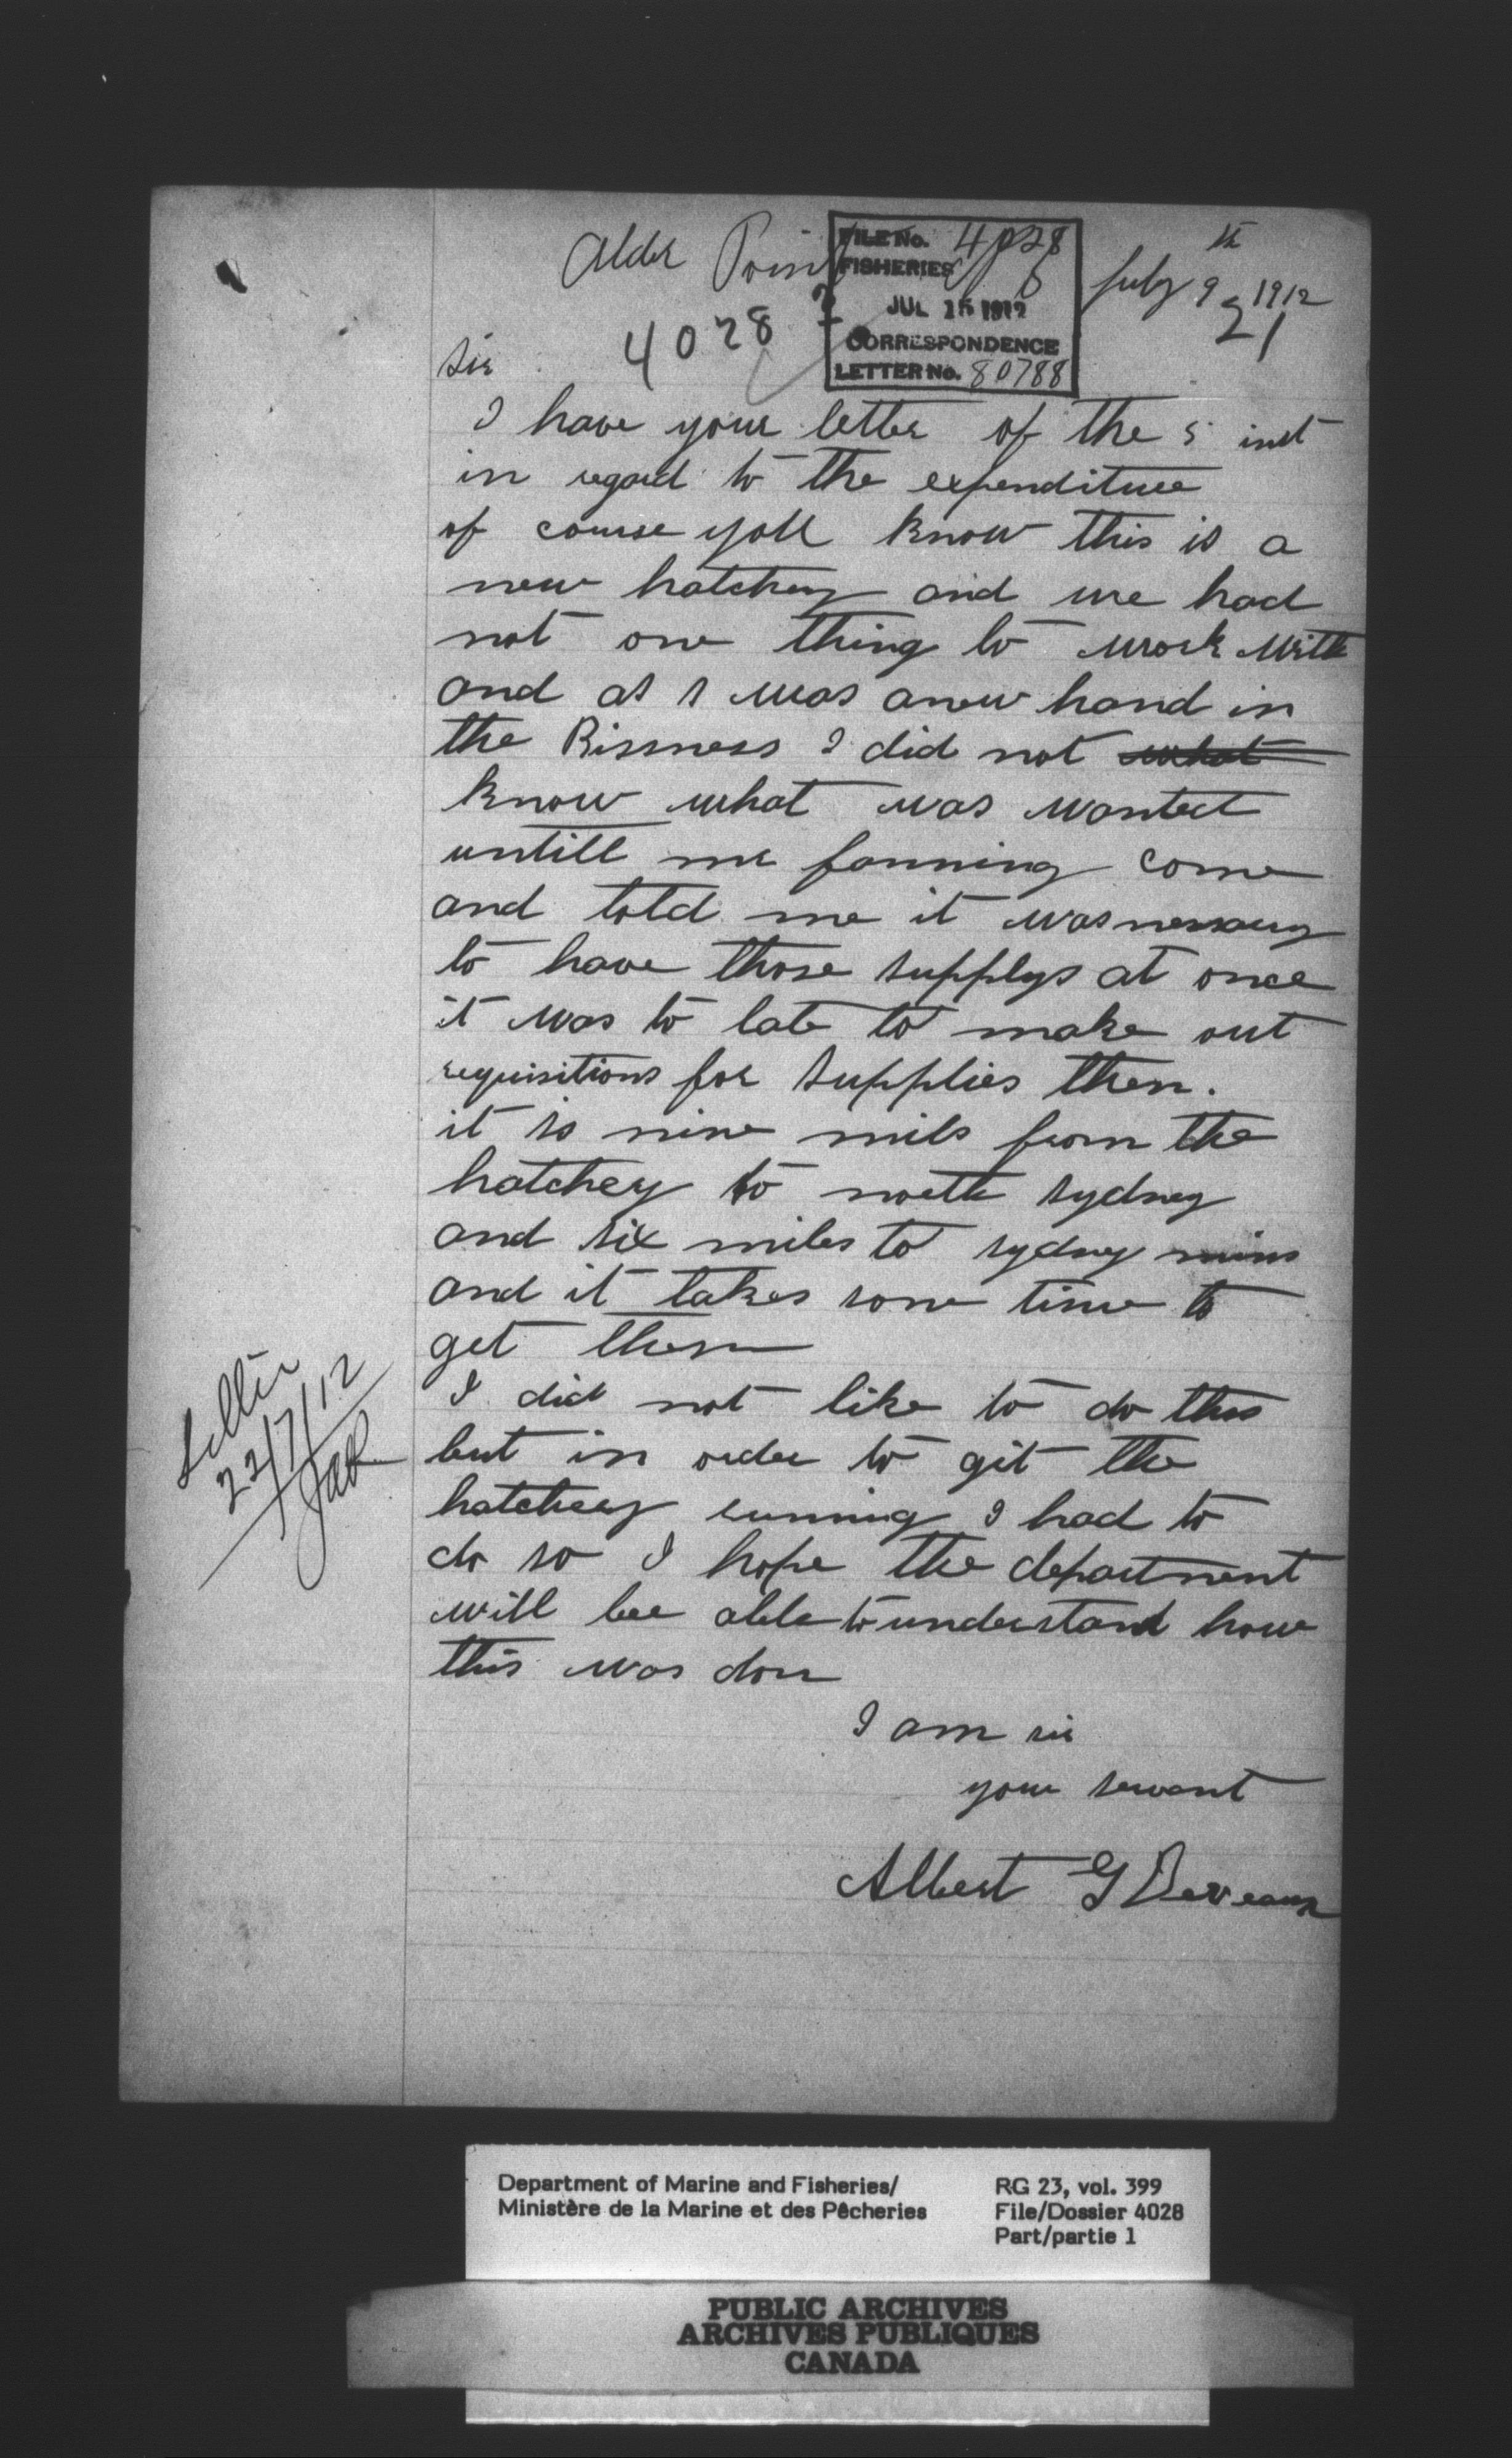 Alder Point July 9th 1912
FILE No. 4028
FISHERIES
JUL 15 1912
CORRESPONDENCE
LETTER No. 80788
21
4028
Sir
I have your letter of the 5 inst
in regard to the expenditure
of course you know this is a
new hatchey and we had
not one thing to work with
and as I was anew hand in
the Bissness I did not what
know what was wanted
untill mr fanning come
and told me it was nessary
to have those supplys at once
it was to late to make out
requisitions for supplies then.
it is nine mils from the
hatchey to north sydney
and six miles to sydney mins
and it takes some time to
get them
I did not like to do this
but in order to git the
hatchery running I had to
do so I hope the department
will bee able to understand how
this was don
I am sir
your servant
Albert G Deveaux
22/7/12
Department of Marine and Fisheries/
Ministère de la Marine et des Pêcheries
RG 23, vol. 399
File/Dossier 4028
Part/partie 1
PUBLIC ARCHIVES
ARCHIVES PUBLIQUES
CANADA